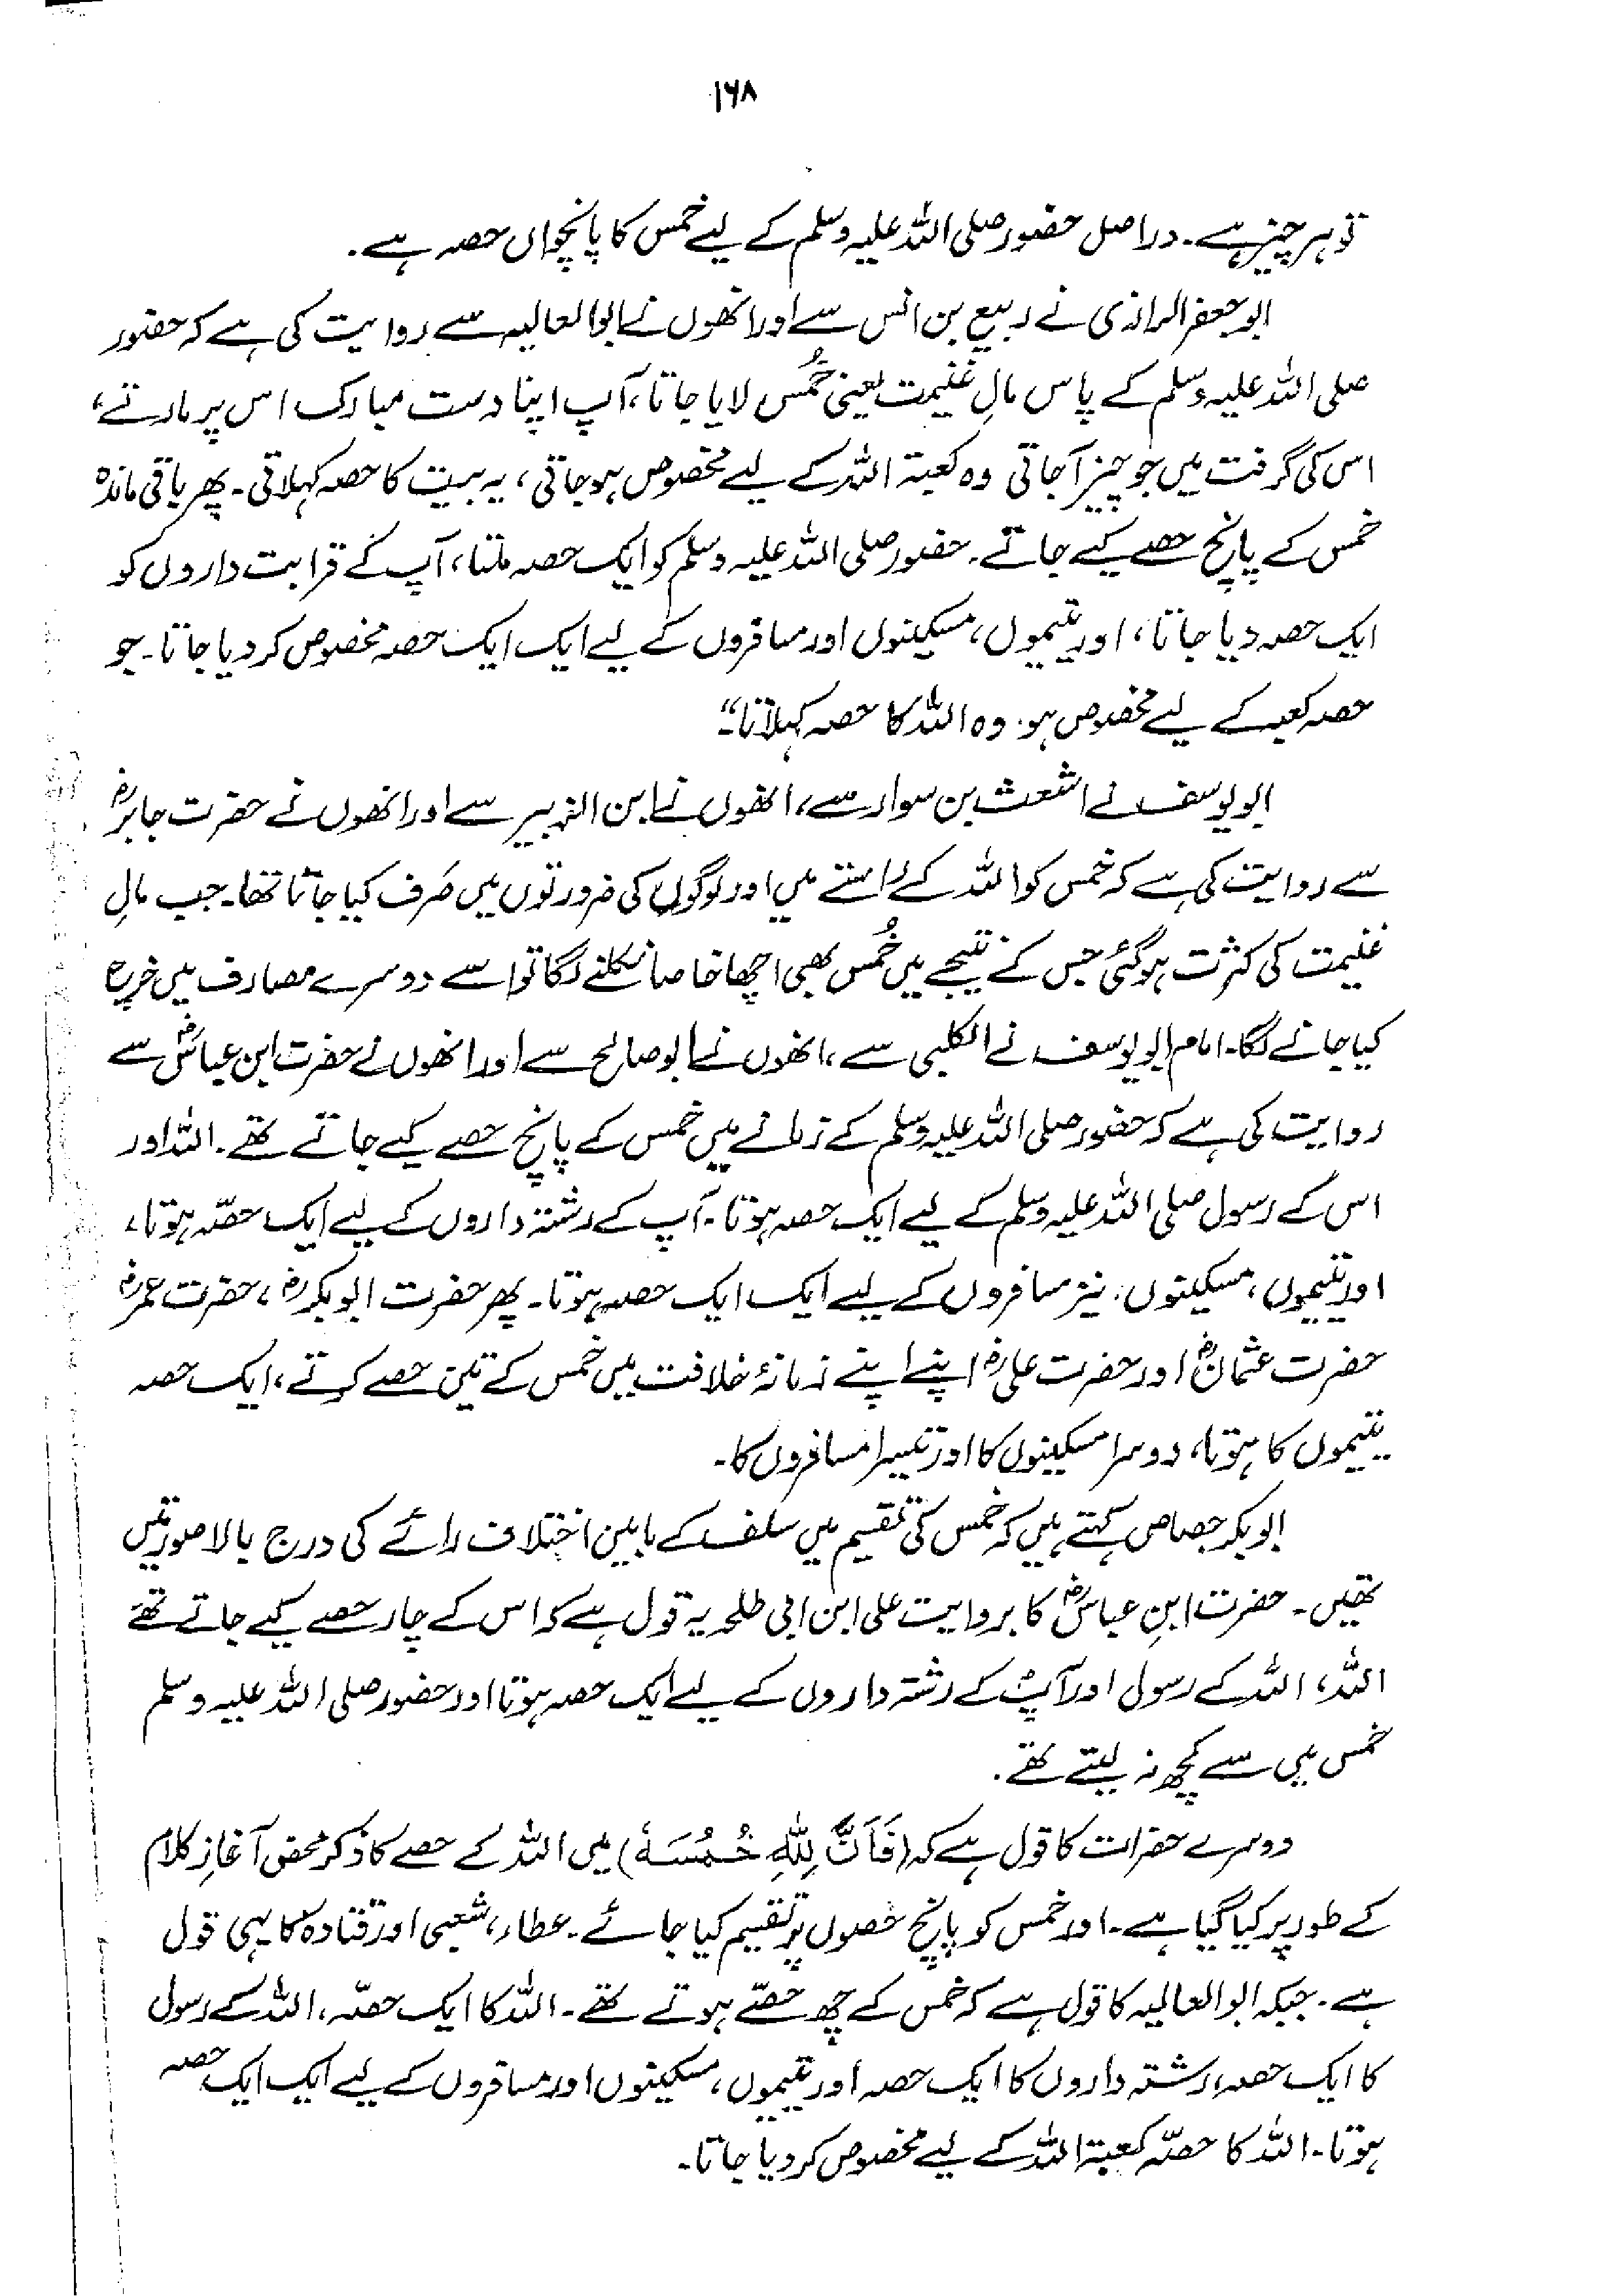 ۱۶۸
تو ہر چیز ہے۔ دراصل حضور صلی اللہ علیہ وسلم کے لیے خمس کا پانچواں حصہ ہے۔
ابوجعفر الرازی نے ربیع بن انس سے اور انھوں نے ابوالعالیہ سے روایت کی ہے کہ حضور
صلی اللہ علیہ وسلم کے پاس مالِ غنیمت یعنی خُمُس لایا جاتا، آپ اپنا دست مبارک اس پر مارتے،
اس کی گرفت میں جو چیز آجاتی وہ کعبۃ اللہ کے لیے مخصوص ہوجاتی، یہ بیت کا حصہ کہلاتی۔ پھر باقی ماندہ
خمس کے پانچ حصے کیے جاتے۔ حضور صلی اللہ علیہ وسلم کو ایک حصہ ملتا، آپ کے قرابت داروں کو
ایک حصہ دیا جاتا، اور یتیموں، مسکینوں اور مسافروں کے لیے ایک ایک حصہ مخصوص کردیا جاتا۔ جو
حصہ کعبہ کے لیے مخصوص ہو۔ وہ اللہ کا حصہ کہلاتا"۔
ابویوسف نے اشعث بن سوار سے، انھوں نے ابن الزبیر سے اور انھوں نے حضرت جابرؓ
سے روایت کی ہے کہ خمس کو اللہ کے راستے میں اور لوگوں کی ضرورتوں میں صَرف کیا جاتا تھا۔ جب مالِ
غنیمت کی کثرت ہوگئی جس کے نتیجے میں خُمس بھی اچھا خاصا نکلنے لگا تو اسے دوسرے مصارف میں خرچ
کیا جانے لگا۔ امام ابویوسف نے الکلبی سے، انھوں نے ابوصالح سے اور انھوں نے حضرت ابن عباسؓ سے
روایت کی ہے کہ حضور صلی اللہ علیہ وسلم کے زمانے میں خمس کے پانچ حصے کیے جاتے تھے۔ اللہ اور
اس کے رسول صلی اللہ علیہ وسلم کے لیے ایک حصہ ہوتا۔ آپ کے رشتہ داروں کے لیے ایک حصّہ ہوتا،
اور یتیموں، مسکینوں، نیز مسافروں کے لیے ایک ایک حصہ ہوتا۔ پھر حضرت ابوبکرؓ، حضرت عمرؓ
حضرت عثمانؓ اور حضرت علیؓ اپنے اپنے زمانۂ خلافت میں خمس کے تین حصے کرتے، ایک حصہ
یتیموں کا ہوتا، دوسرا مسکینوں کا اور تیسرا مسافروں کا۔
ابوبکر جصاص کہتے ہیں کہ خمس کی تقسیم میں سلف کے مابین اختلاف رائے کی درج بالا صورتیں
تھیں۔ حضرت ابنِ عباسؓ کا بروایت علی ابن ابی طلحہ یہ قول ہے کہ اس کے چار حصے کیے جاتے تھے
اللہ، اللہ کے رسول اور آپؐ کے رشتہ داروں کے لیے ایک حصہ ہوتا اور حضور صلی اللہ علیہ وسلم
خمس میں سے کچھ نہ لیتے تھے۔
دوسرے حضرات کا قول ہے کہ (فَاَنَّ لِلّٰهِ خُمُسَهٗ) میں اللہ کے حصے کا ذکر محض آغازِ کلام
کے طور پر کیا گیا ہے۔ اور خمس کو پانچ حصوں پر تقسیم کیا جائے۔ عطاء، شعبی اور قتادہ کا یہی قول
ہے۔ جبکہ ابوالعالیہ کا قول ہے کہ خمس کے چھ حصّے ہوتے تھے۔ اللہ کا ایک حصّہ، اللہ کے رسول
کا ایک حصہ، رشتہ داروں کا ایک حصہ اور یتیموں، مسکینوں اور مسافروں کے لیے ایک ایک حصہ
ہوتا۔ اللہ کا حصّہ کعبۃ اللہ کے لیے مخصوص کر دیا جاتا۔